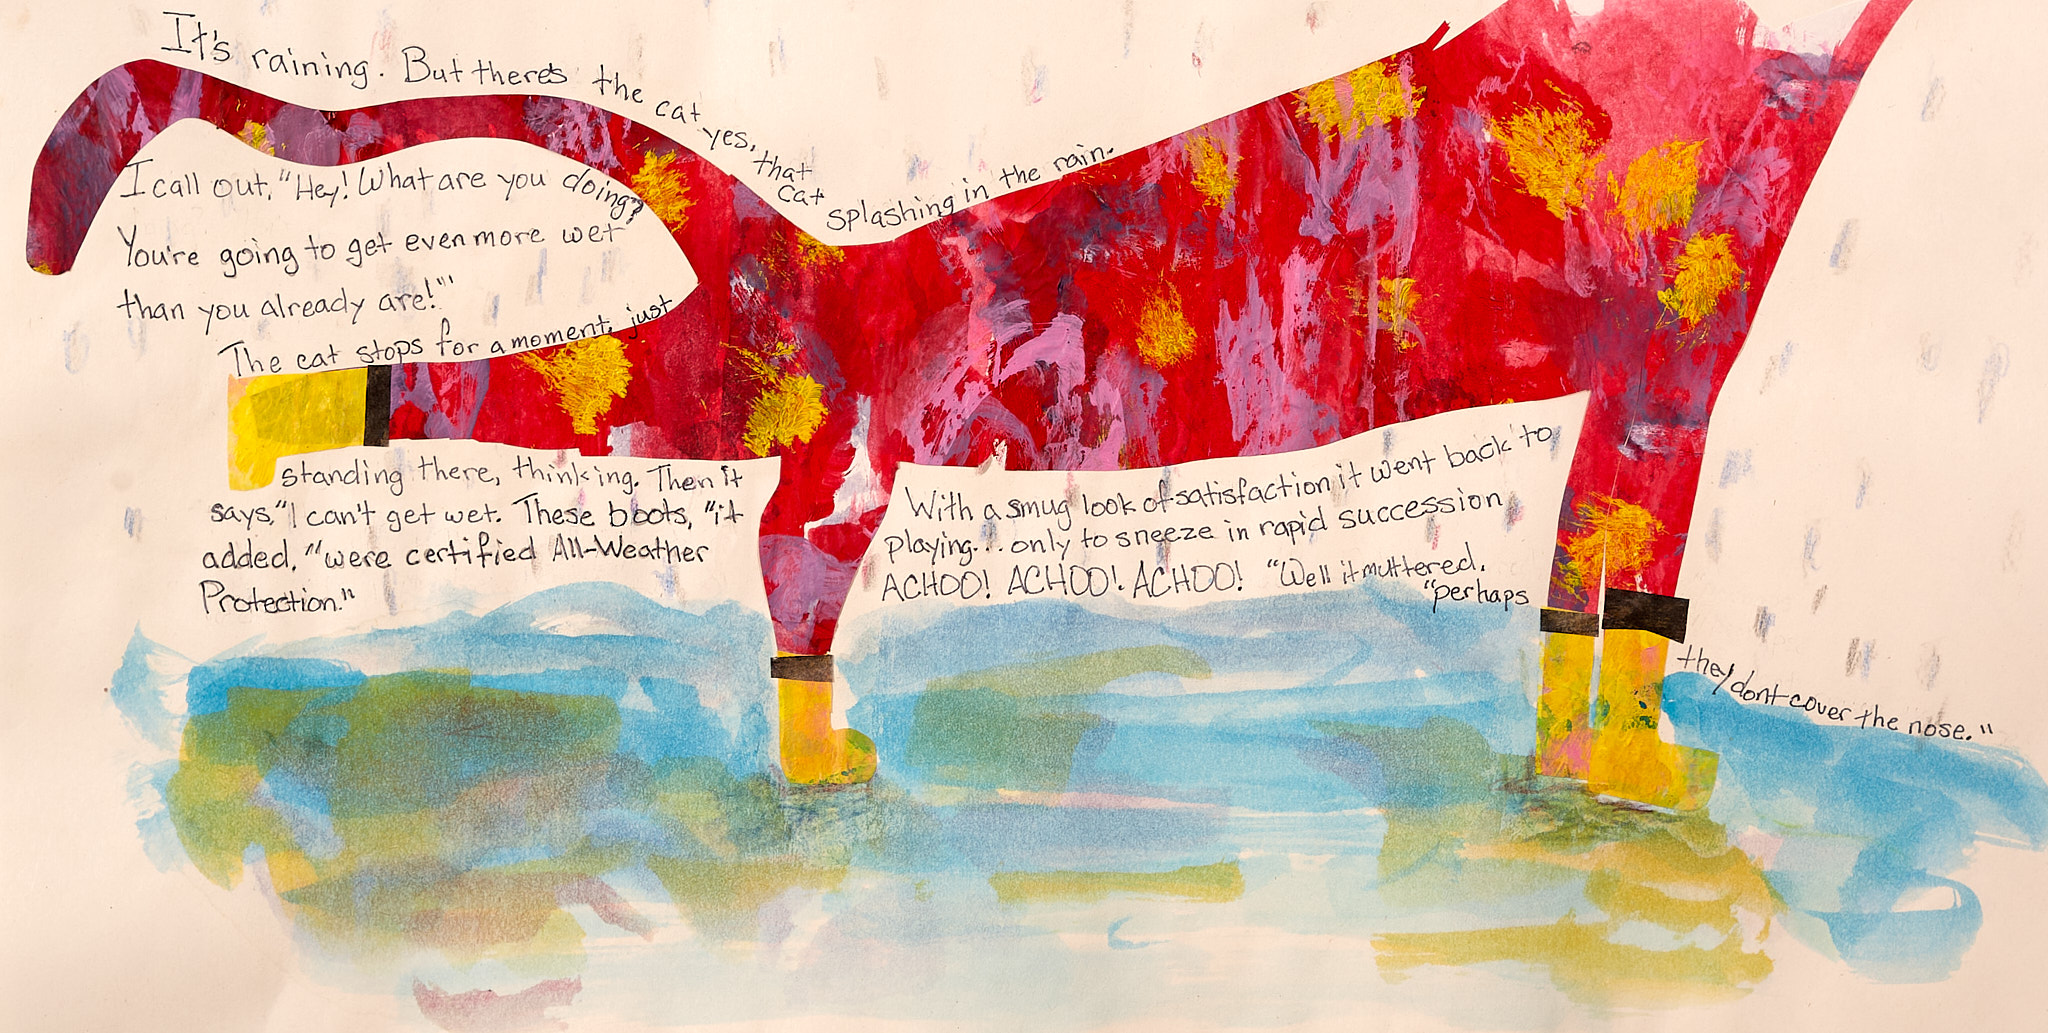 It's raining. But there's the cat yes, that cat splashing in the rain.
I call out, "Hey! What are you doing?
You're going to get even more wet"
than you already are!"'
The cat stops for a moment, just
standing there, thinking. Then it
says, "I can't get wet. These boots, "it
added, "were certified All-Weather
Protection."
With a smug look of satisfaction it went back to
playing... only to sneeze in rapid succession
ACHOO! ACHOO! ACHOO! "Well it muttered,
"perhaps
they dont cover the nose."